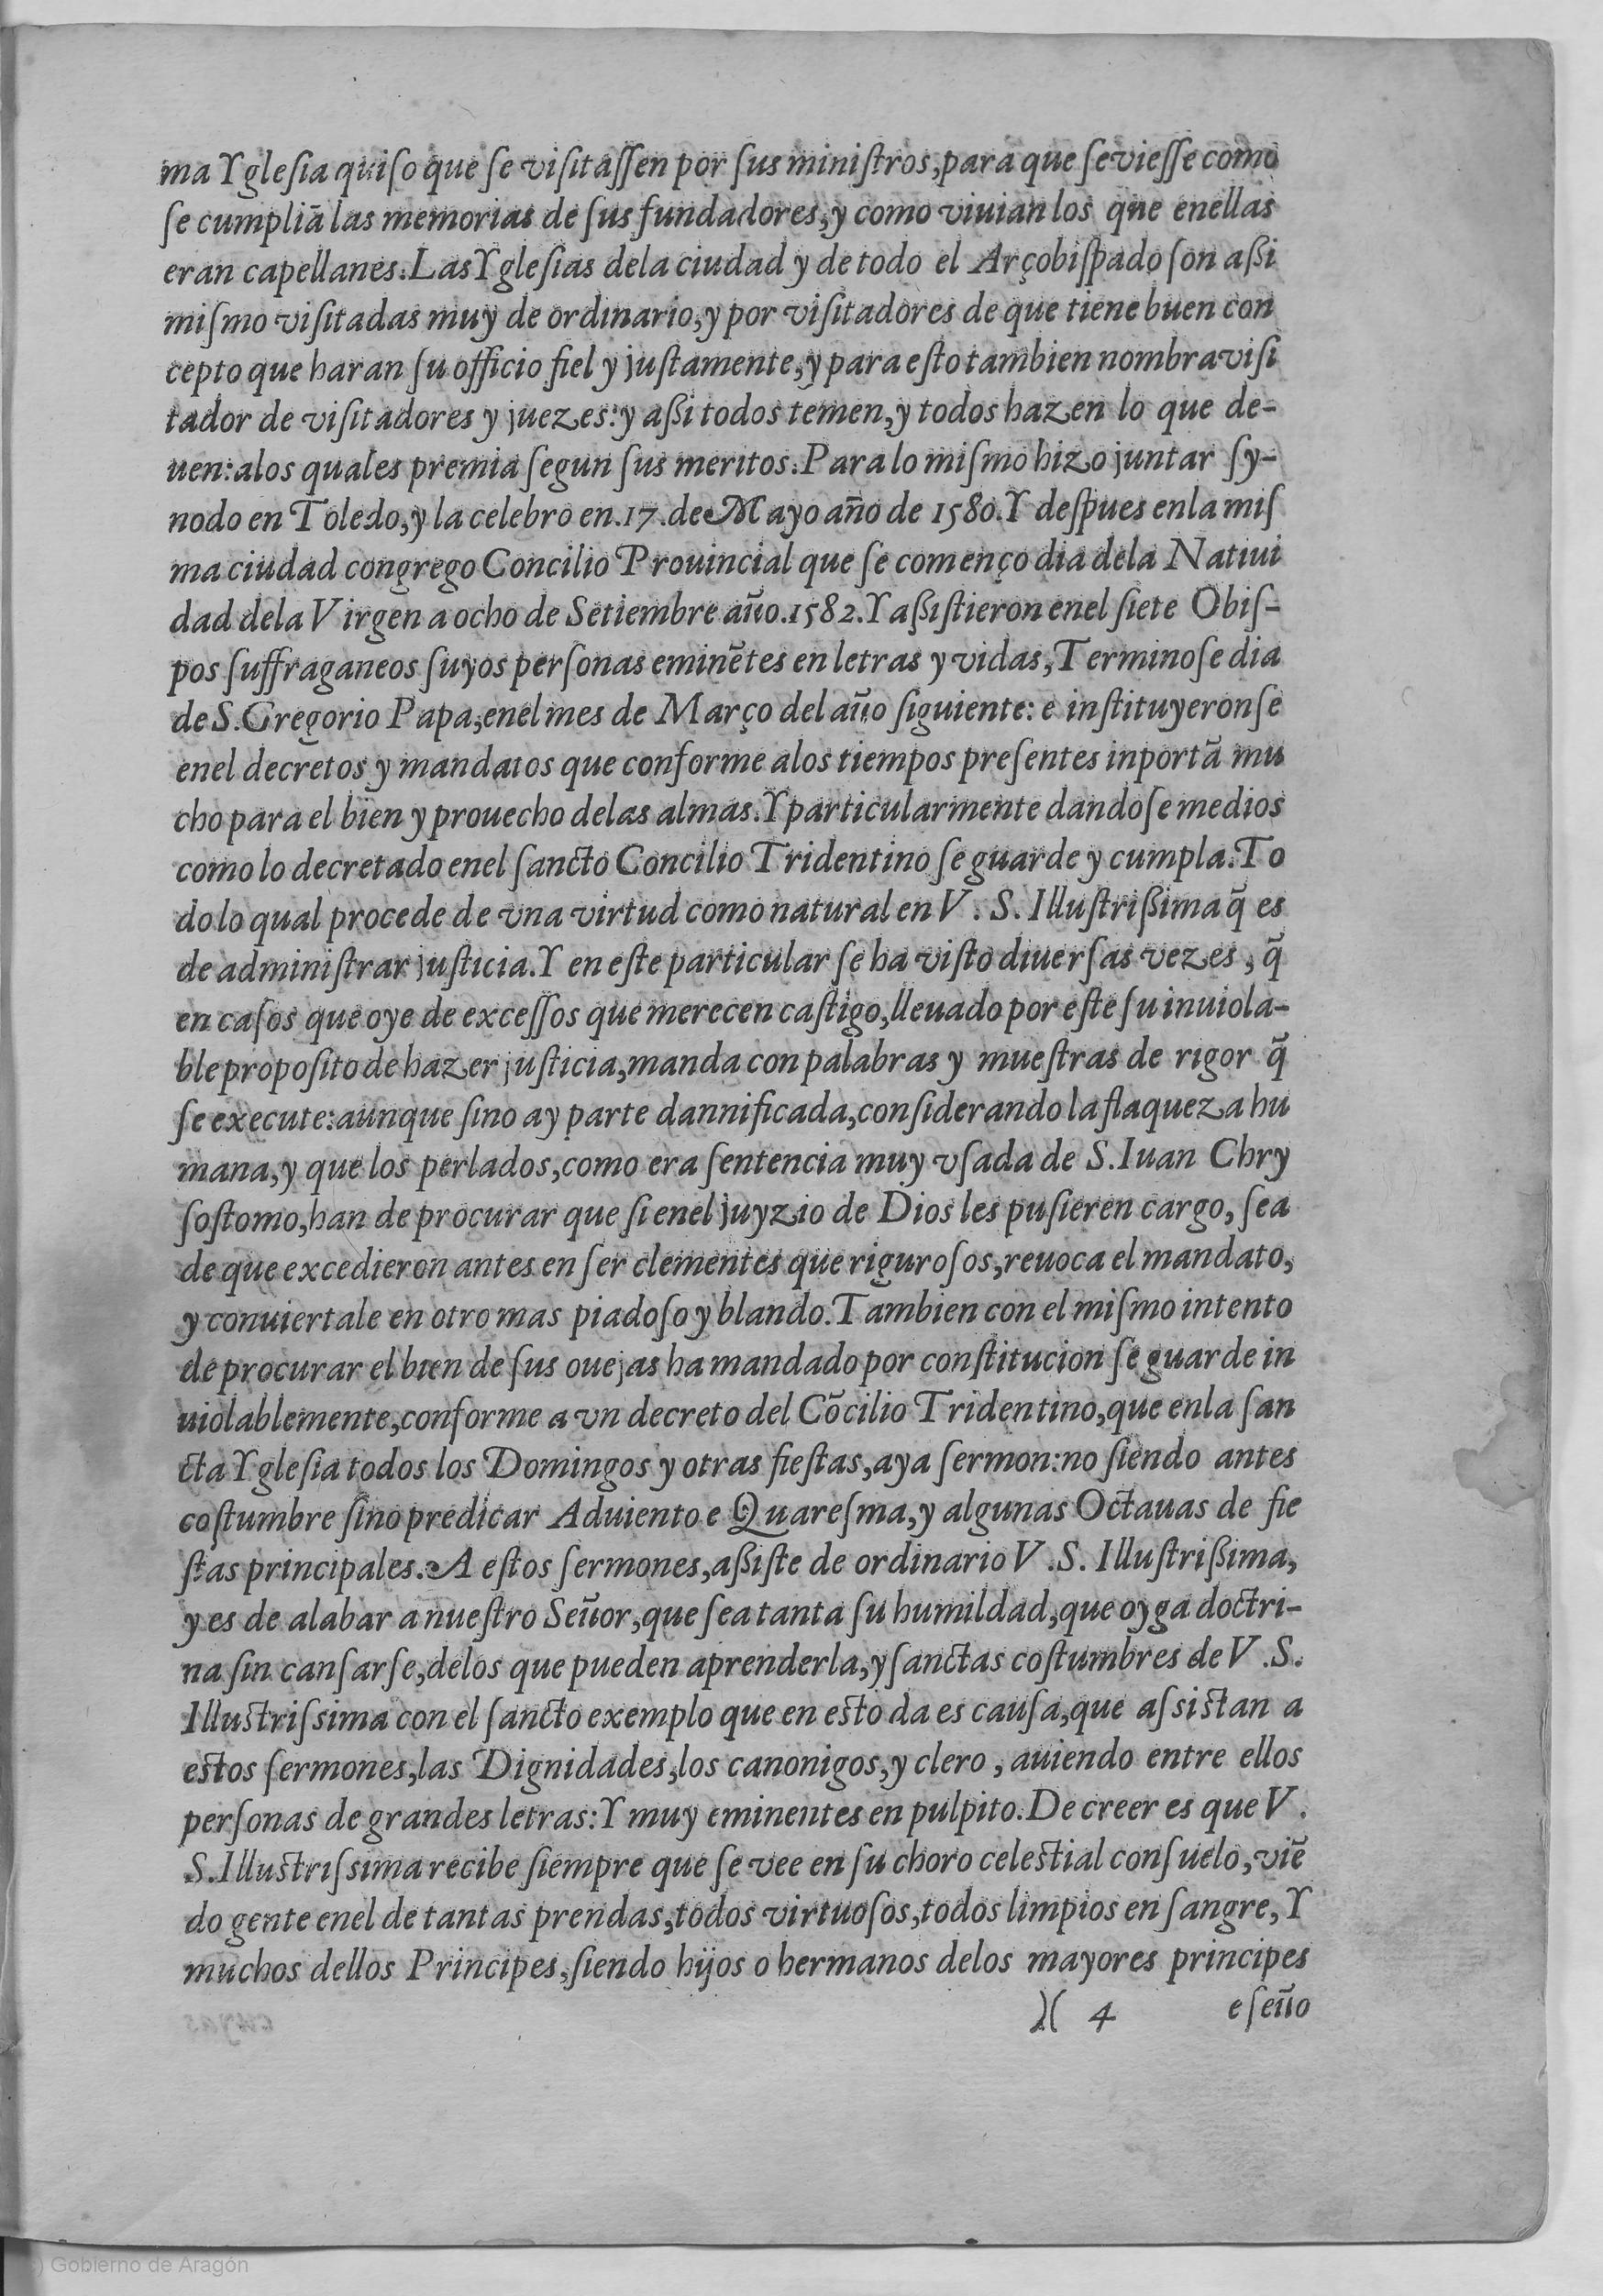 ma Yglesia quiſo que ſe viſitaſſen por ſus miniſtros, para que ſe vieſſe como
ſe cumpliā las memorias de ſus fundadores, y como viuian los que enellas
eran capellanes. Las Ygleſias dela ciudad y de todo el Arçobiſpado ſon aßi
miſmo viſitadas muy de ordinario, y por viſitadores de que tiene buen con
cepto que haran ſu officio fiel y juſtamente, y para eſto tambien nombra viſi
tador de viſitadores y juezes: y aßi todos temen, y todos hazen lo que de-
uen: alos quales premia ſegun ſus meritos. Para lo miſmo hizo juntar ſy-
nodo en Toledo, y la celebro en. 17. de Mayo año de 1580. Y deſpues enla miſ
ma ciudad congrego Concilio Prouincial que ſe començo dia dela Natiui
dad dela Virgen a ocho de Setiembre año. 1582. Y aßiſtieron enel ſiete Obiſ-
pos ſuffraganeos ſuyos perſonas eminētes en letras y vidas, Terminoſe dia
de S. Gregorio Papa, enel mes de Março del año ſiguiente: e inſtituyeronſe
enel decretos y mandatos que conforme alos tiempos preſentes inportā mu
cho para el bien y prouecho delas almas. Y particularmente dandoſe medios
como lo decretado enel ſancto Concilio Tridentino ſe guarde y cumpla. To
do lo qual procede de vna virtud como natural en V. S. Illuſtrißima q̄ es
de adminiſtrar juſticia. Y en eſte particular ſe ha viſto diuerſas vezes, q̄
en caſos que oye de exceſſos que merecen caſtigo, lleuado por eſte ſu inuiola-
ble propoſito de hazer juſticia, manda con palabras y mueſtras de rigor q̄
ſe execute: aunque ſino ay parte dannificada, conſiderando la flaqueza hu
mana, y que los perlados, como era ſentencia muy vſada de S. Iuan Chry
ſoſtomo, han de procurar que ſi enel juyzio de Dios les puſieren cargo, ſea
de que excedieron antes en ſer clementes que riguroſos, reuoca el mandato,
y conuiertale en otro mas piadoſo y blando. Tambien con el miſmo intento
de procurar el bien de ſus ouejas ha mandado por conſtitucion ſe guarde in
uiolablemente, conforme a vn decreto del Cōcilio Tridentino, que enla ſan
cta Ygleſia todos los Domingos y otras fieſtas, aya ſermon: no ſiendo antes
coſtumbre ſino predicar Aduiento e Quareſma, y algunas Octauas de fie
ſtas principales. A eſtos ſermones, aßiſte de ordinario V. S. Illuſtrißima,
y es de alabar a nueſtro Señor, que ſea tanta ſu humildad, que oyga doctri-
na ſin canſarſe, delos que pueden aprenderla, y ſanctas coſtumbres de V. S.
Illuſtriſsima con el ſancto exemplo que en eſto da es cauſa, que aſsiſtan a
eſtos ſermones, las Dignidades, los canonigos, y clero, auiendo entre ellos
perſonas de grandes letras: Y muy eminentes en pulpito. De creer es que V.
S. Illuſtriſsima recibe ſiempre que ſe vee en ſu choro celeſtial conſuelo, viē
do gente enel de tantas prendas, todos virtuoſos, todos limpios en ſangre, Y
muchos dellos Principes, ſiendo hijos o hermanos delos mayores principes
)( 4 e ſeño
Gobierno de Aragón